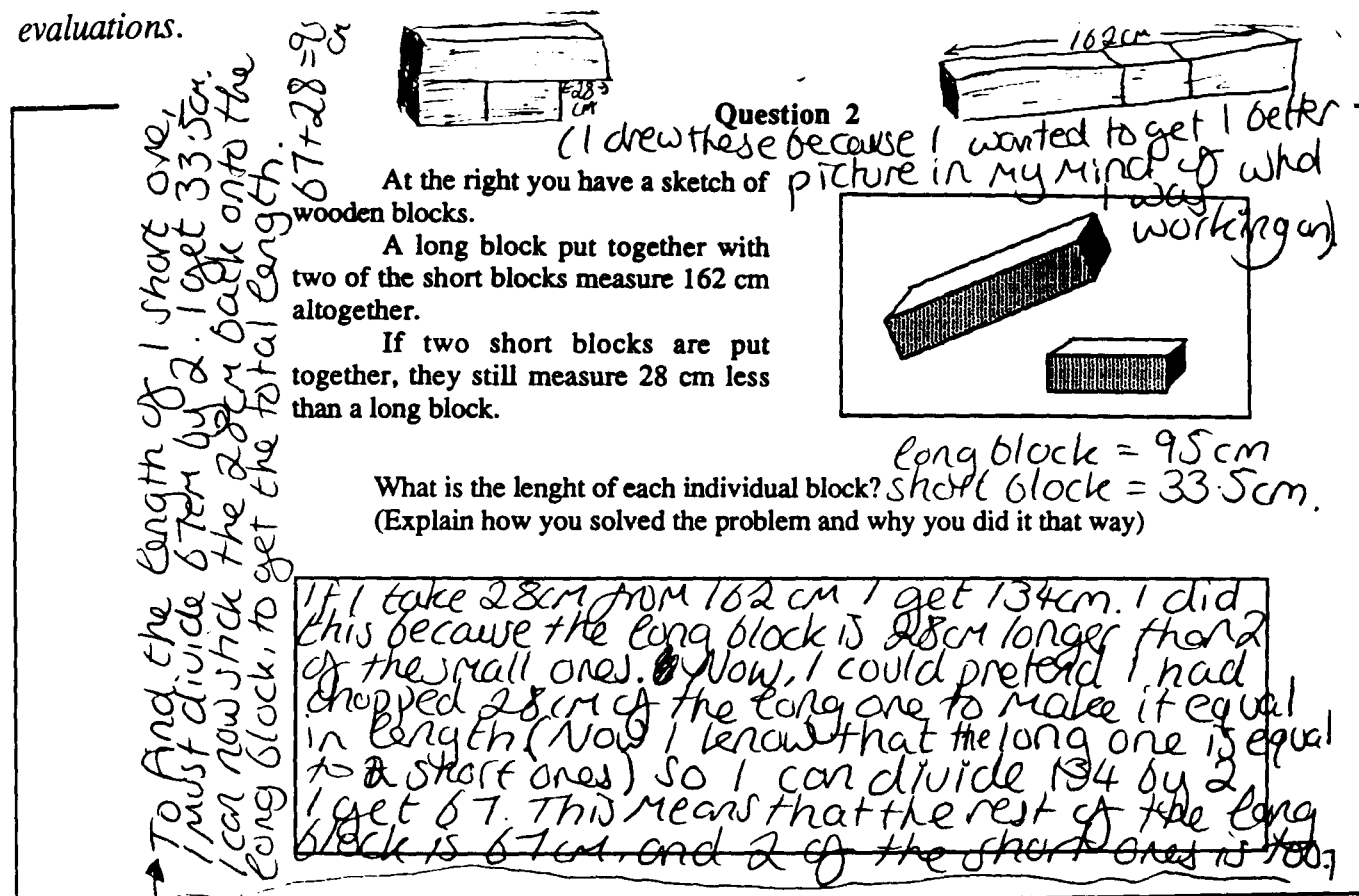 evaluations.
28
CM
162CM
Question 2
(I drew these because I wanted to get I better
picture in my mind of what
I was
working on).
At the right you have a sketch of
wooden blocks.
A long block put together with
two of the short blocks measure 162 cm
altogether.
If two short blocks are put
together, they still measure 28 cm less
than a long block.
long block = 95cm
What is the lenght of each individual block? short block = 33.5cm.
(Explain how you solved the problem and why you did it that way)
If I take 28cm from 162 cm I get 134cm. I did
this because the long block is 28cm longer than 2
of the small ones. Now, I could pretend I had
chopped 28cm of the long one to make it equal
in length (Now I know that the long one is equal
to 2 short ones) so I can divide 134 by 2
I get 67. This means that the rest of the long
block is 67cm, and 2 of the short ones is too.
To find the length of 1 short one,
I must divide 67cm by 2. I get 33.5cm.
I can now stick the 28cm back onto the
long block, to get the total length.
67+28=95
cm